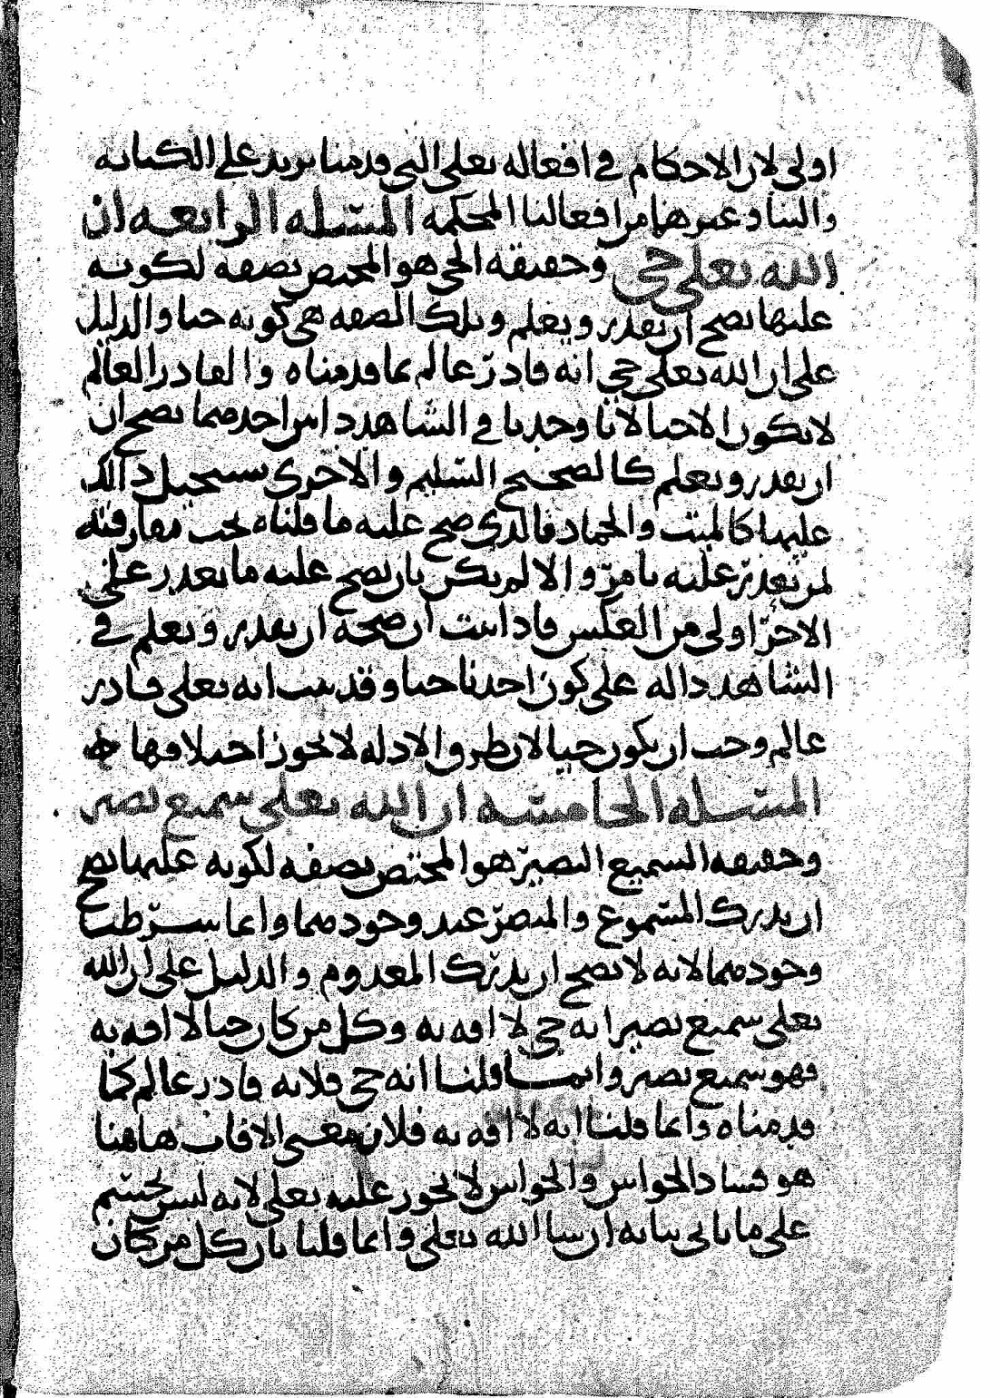 اولى لان الاحكام في افعاله تعلى التي قدمنا يزيد على الكتابه
والبنا وغيرهما من افعالنا المحكمه المسئله الرابعه ان
الله تعلى حي وحقيقه الحي هو المختص بصفه لكونه
عليها يصح ان يقدر ويعلم وتلك الصفه هي كونه حيا والدليل
على ان الله تعلى حي انه قادر عالم بما قدمناه والقادر العالم
لا يكون الا حيا لانا وجدنا في الشاهد ذاتين احدهما يصح ان
ان يقدر ويعلم كالصحيح السليم والاخرى يستحيل ذالك
عليها كالميت والجماد فالذي صح عليه ما قلناه يجب مفارقته
لمن تعذر عليه بامر والا لم يكن بان يصح عليه ما تعذر على
الاخر اولى من العكس فاذا ثبت ان صحه ان يقدر ويعلم في
الشاهد داله على كون احدنا حيا وقد ثبت انه تعلى قادر
عالم وجب ان يكون حيا لان طرق الادله لا يجوز اختلافها ه
المسئله الخامسه ان الله تعلى سميع بصير
وحقيقه السميع البصير هو المختص بصفه لكونه عليها يصح
ان يدرك المسموع والمبصر عند وجودهما وانما شرطنا
وجودهما لانه لا يصح ان يدرك المعدوم والدليل على ان الله
تعلى سميع بصير انه حي لا افه به وكل من كان حيا لا افه به
فهو سميع بصير وانما قلنا انه حي فلانه قادر عالم كما
قدمناه وانما قلنا انه لا افه به فلان معنى الافات هاهنا
هو فساد الحواس والحواس لا تجوز عليه تعلى لانه ليس بجسم
على ما ياتي بيانه ان شا الله تعلى وانما قلنا بان كل من كان